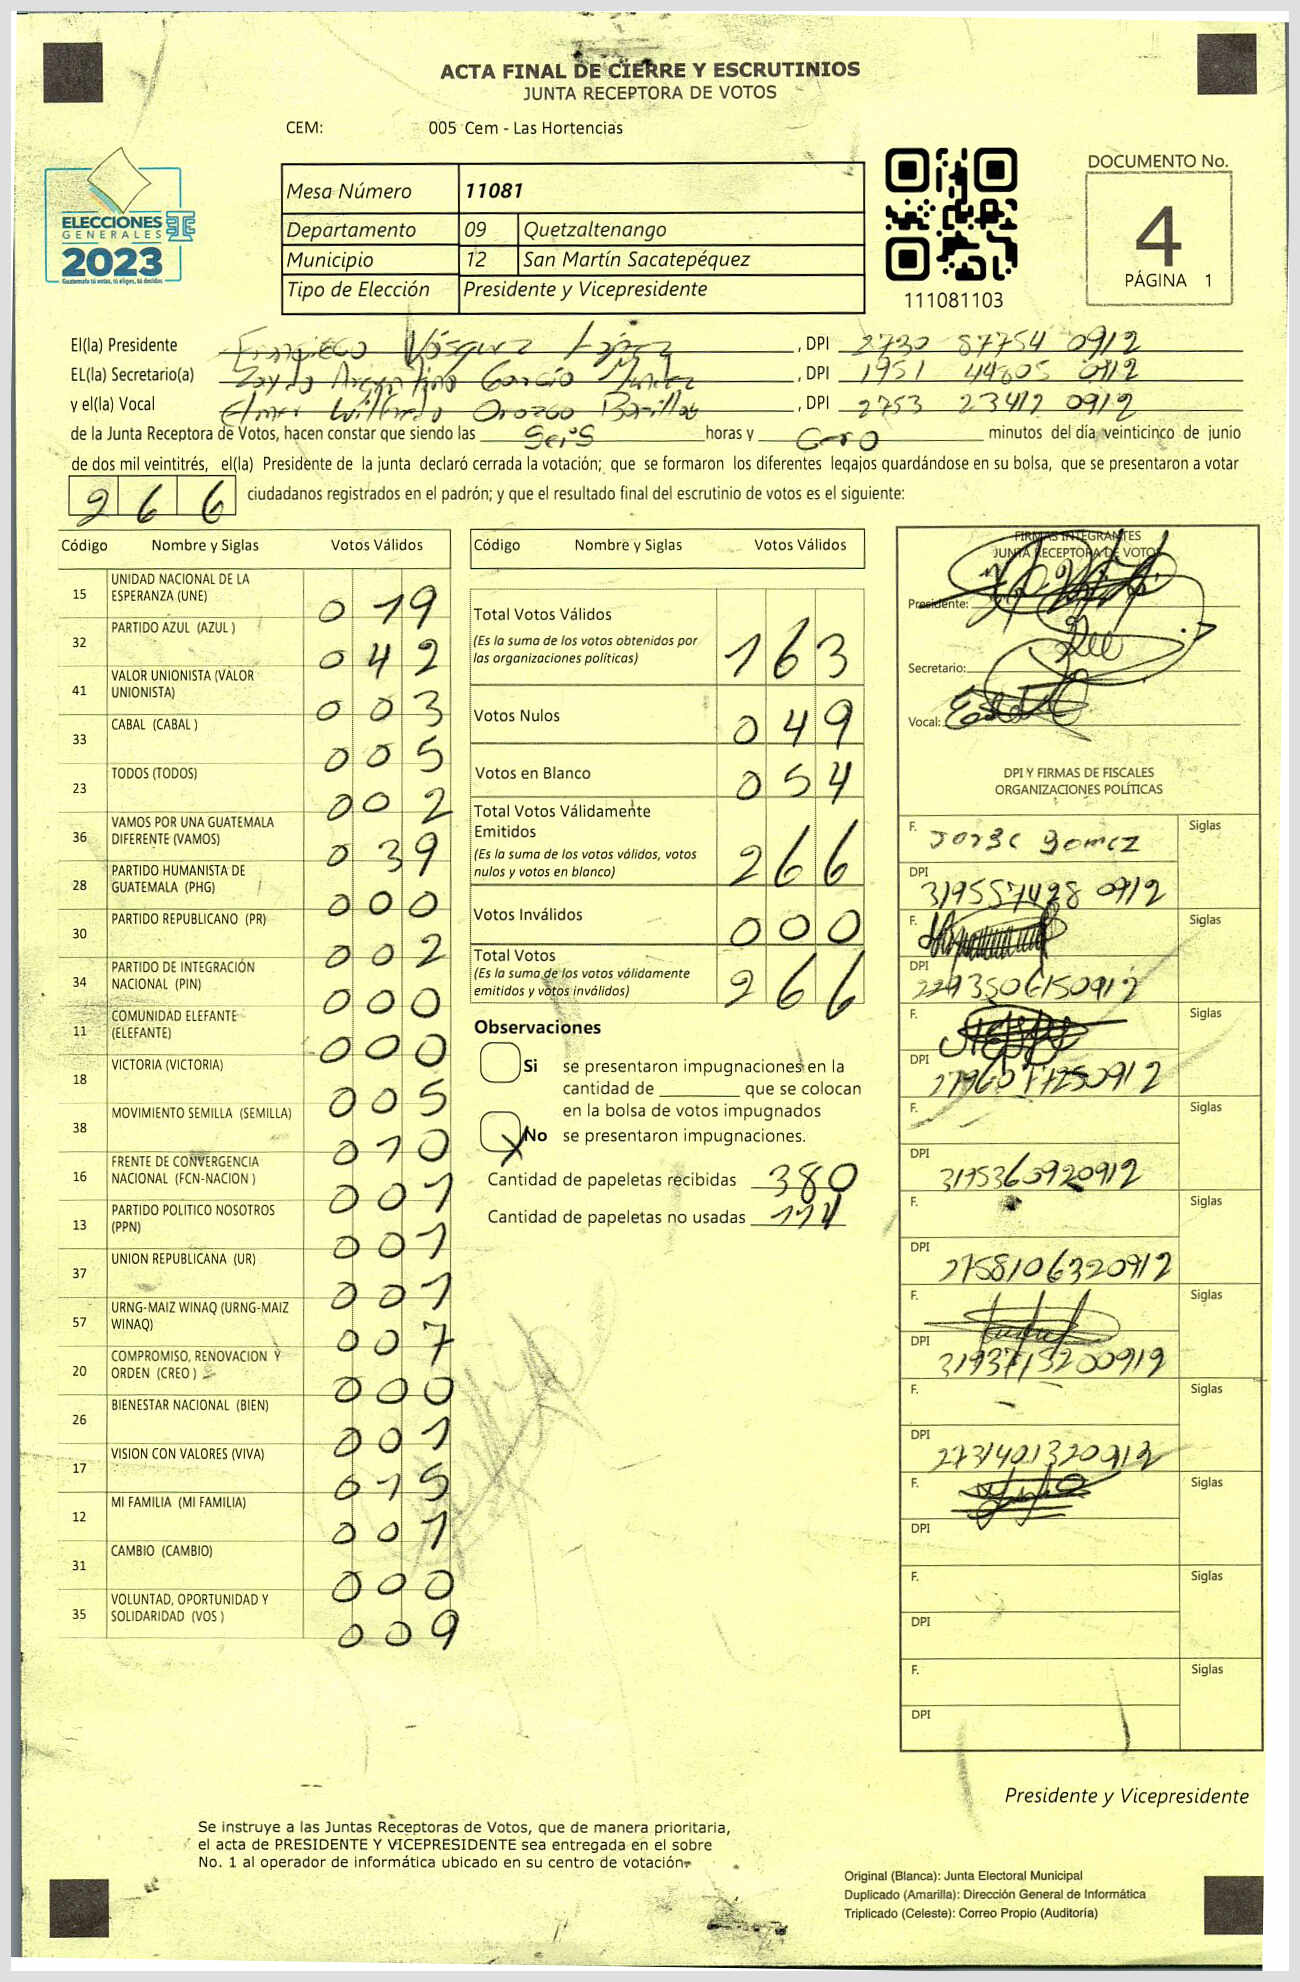 ACTA FINAL DE CIERRE Y ESCRUTINIOS
JUNTA RECEPTORA DE VOTOS
CEM: 005 Cem - Las Hortencias
ELECCIONES
GENERALES
2023
Guatemala tú votas, tú eliges, tú decides
Mesa Número 11081
Departamento 09 Quetzaltenango
Municipio 12 San Martín Sacatepéquez
Tipo de Elección Presidente y Vicepresidente
111081103
DOCUMENTO No.
4
PÁGINA 1
El(la) Presidente Francisco Vásquez López, DPI 2730 87754 0912
EL(la) Secretario(a) García, DPI 1951 44805 0912
y el(la) Vocal Elmer Wilfredo Orozco Barillas, DPI 2753 23412 0912
de la Junta Receptora de Votos, hacen constar que siendo las Seis horas y Cero minutos del día veinticinco de junio
de dos mil veintitrés, el(la) Presidente de la junta declaró cerrada la votación; que se formaron los diferentes legajos guardándose en su bolsa, que se presentaron a votar
266 ciudadanos registrados en el padrón; y que el resultado final del escrutinio de votos es el siguiente:
Código Nombre y Siglas Votos Válidos
15 UNIDAD NACIONAL DE LA ESPERANZA (UNE) 019
32 PARTIDO AZUL (AZUL ) 042
41 VALOR UNIONISTA (VALOR UNIONISTA) 003
33 CABAL (CABAL ) 005
23 TODOS (TODOS) 002
36 VAMOS POR UNA GUATEMALA DIFERENTE (VAMOS) 039
28 PARTIDO HUMANISTA DE GUATEMALA (PHG) 000
30 PARTIDO REPUBLICANO (PR) 002
34 PARTIDO DE INTEGRACIÓN NACIONAL (PIN) 000
11 COMUNIDAD ELEFANTE (ELEFANTE) 000
18 VICTORIA (VICTORIA) 005
38 MOVIMIENTO SEMILLA (SEMILLA) 010
16 FRENTE DE CONVERGENCIA NACIONAL (FCN-NACION ) 001
13 PARTIDO POLITICO NOSOTROS (PPN) 001
37 UNION REPUBLICANA (UR) 001
57 URNG-MAIZ WINAQ (URNG-MAIZ WINAQ) 007
20 COMPROMISO, RENOVACION Y ORDEN (CREO ) 000
26 BIENESTAR NACIONAL (BIEN) 001
17 VISION CON VALORES (VIVA) 015
12 MI FAMILIA (MI FAMILIA) 001
31 CAMBIO (CAMBIO) 000
35 VOLUNTAD, OPORTUNIDAD Y SOLIDARIDAD (VOS ) 009
Código Nombre y Siglas Votos Válidos
Total Votos Válidos 163
(Es la suma de los votos obtenidos por
las organizaciones políticas)
Votos Nulos 049
Votos en Blanco 054
Total Votos Válidamente
Emitidos 266
(Es la suma de los votos válidos, votos
nulos y votos en blanco)
Votos Inválidos 000
Total Votos 266
(Es la suma de los votos válidamente
emitidos y votos inválidos)
Observaciones
Si se presentaron impugnaciones en la
cantidad de ________ que se colocan
en la bolsa de votos impugnados
X No se presentaron impugnaciones.
Cantidad de papeletas recibidas 380
Cantidad de papeletas no usadas 114
FIRMAS INTEGRANTES
JUNTA RECEPTORA DE VOTOS
Presidente:
Secretario:
Vocal:
DPI Y FIRMAS DE FISCALES
ORGANIZACIONES POLÍTICAS
F. Jorge Gomez Siglas
DPI 319557428 0912
F. Siglas
DPI
F. Siglas
DPI
F. Siglas
DPI 3175363920912
F. Siglas
DPI 2758106320912
F. Siglas
DPI
F. Siglas
DPI 2731401320912
F. Siglas
DPI
F. Siglas
DPI
F. Siglas
DPI
Presidente y Vicepresidente
Se instruye a las Juntas Receptoras de Votos, que de manera prioritaria,
el acta de PRESIDENTE Y VICEPRESIDENTE sea entregada en el sobre
No. 1 al operador de informática ubicado en su centro de votación.
Original (Blanca): Junta Electoral Municipal
Duplicado (Amarilla): Dirección General de Informática
Triplicado (Celeste): Correo Propio (Auditoría)